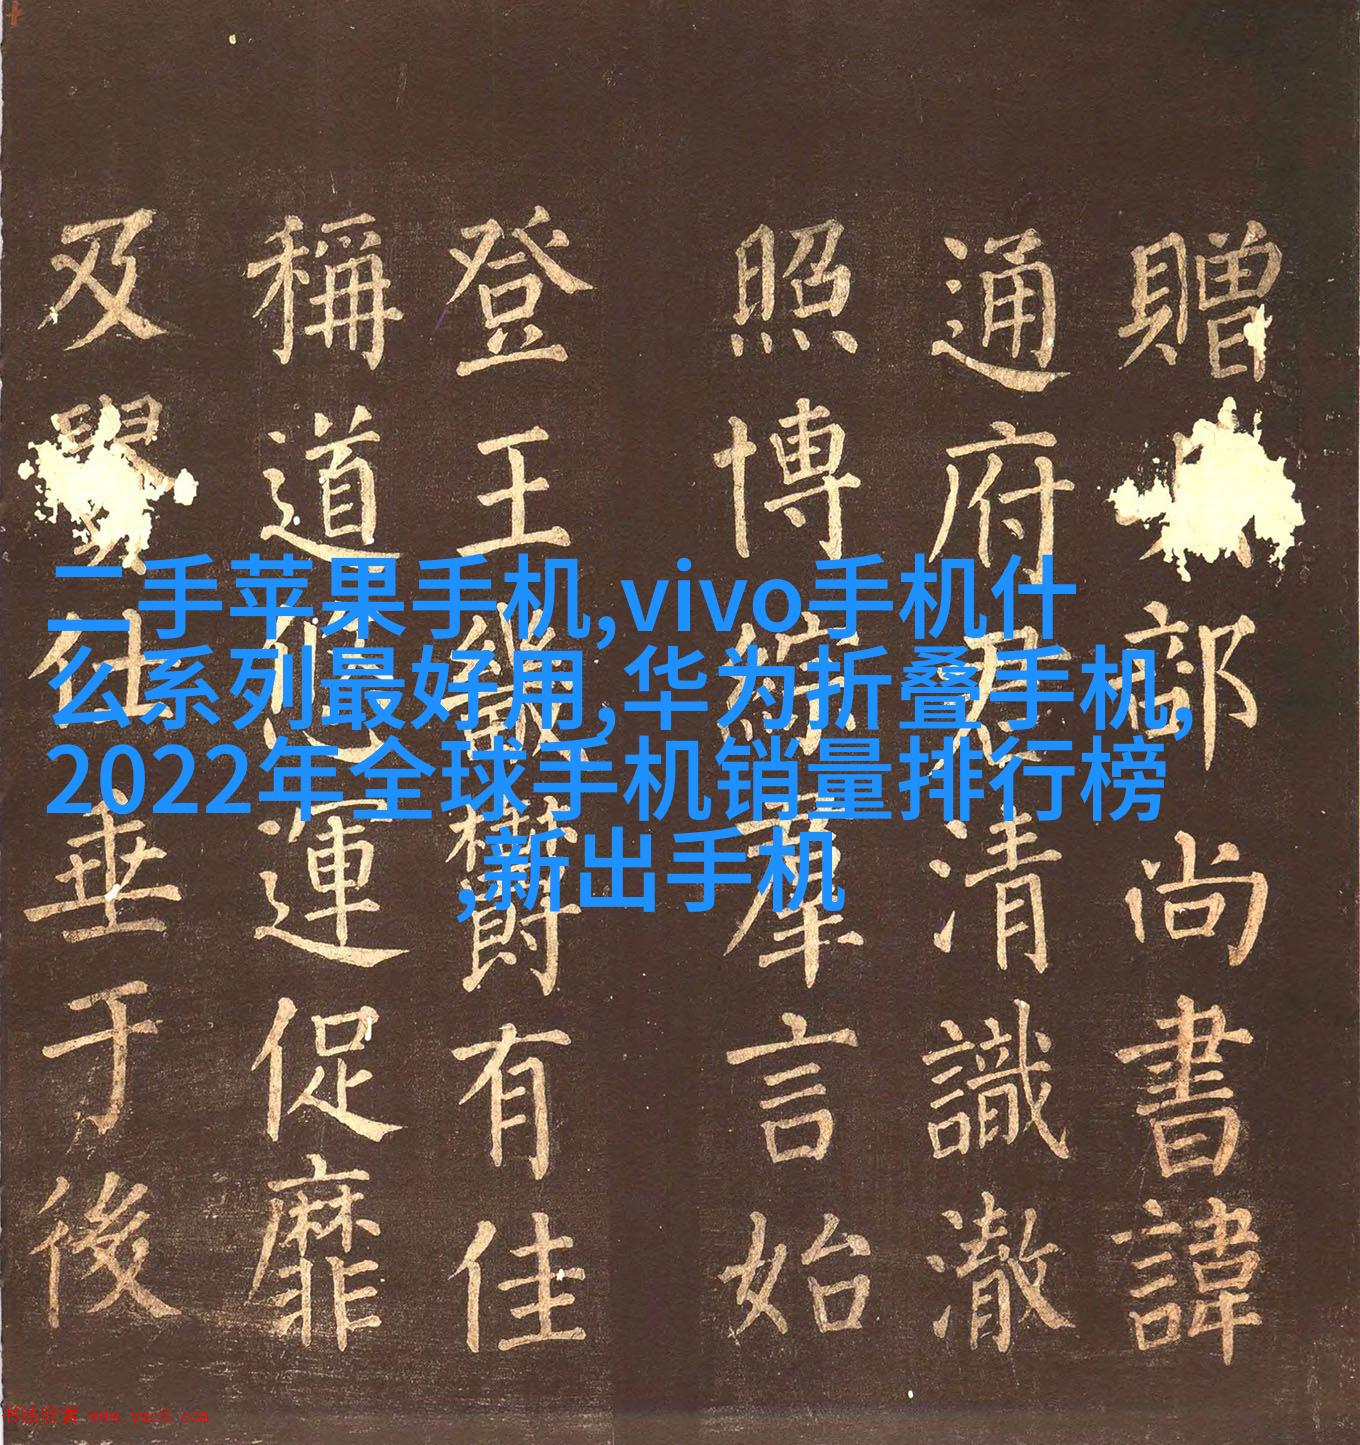 二手苹果手机,vivo手机什
么系列最好用,华为折叠手机,
2022年全球手机销量排行榜
,新出手机
贈部尚書諱
通府君清識澈
照博綜羣言始
登王畿鬱有佳
稱道悠運促靡
及仕垂于後
书法欣赏 www.yac8.com